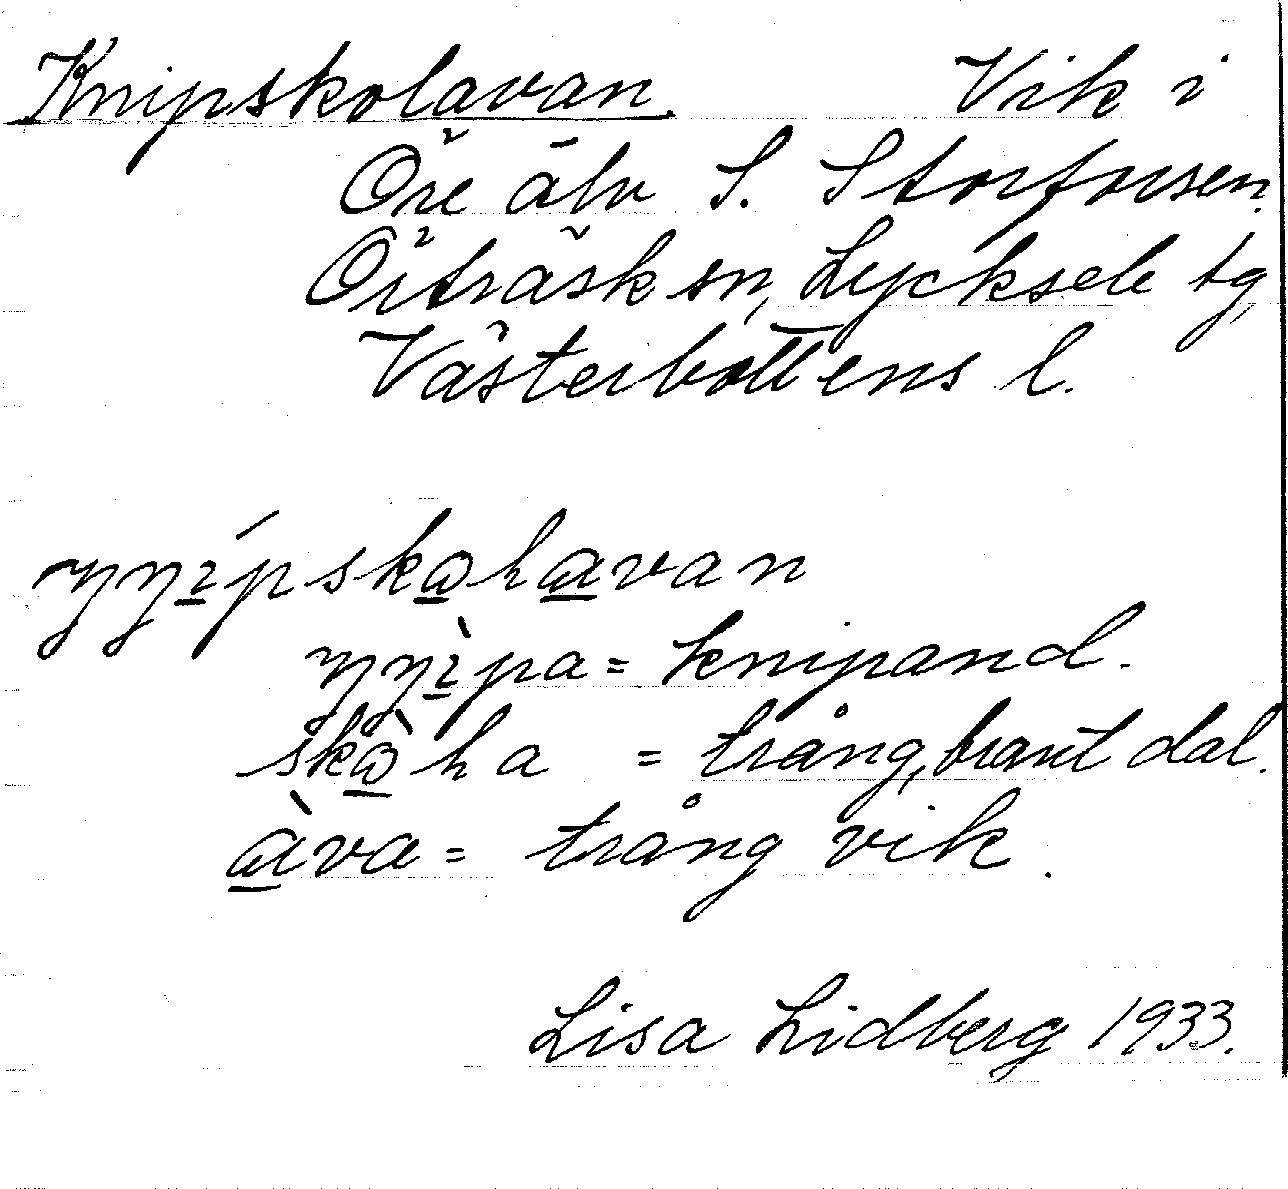 Knipskolavan. Vik i
Öre älv S. Storforsen.
Örträsk sn, Lycksele tg,
Västerbottens l.
knípskωhαvan
knìpa = knipand.
skὼha = trång, brant dal.
ὰva = trång vik.
Lisa Lidberg 1933.